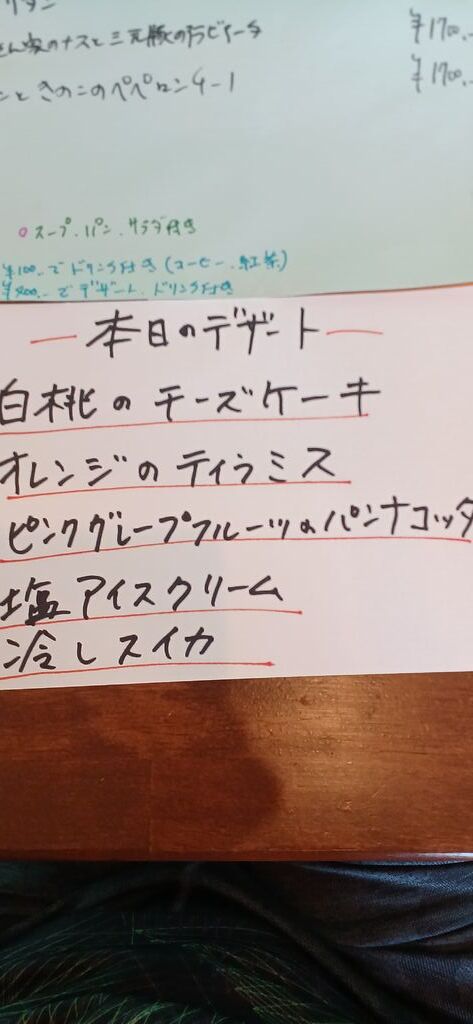 リタン
さん家のナスと三元豚のラビアータ ¥1700.-
ンときのこのペペロンチーノ ¥1700.-
○スープ.パン.サラダ付き
¥100.-でドリンク付き(コーヒー.紅茶)
でデザート.ドリンク付き
— 本日のデザート —
白桃のチーズケーキ
オレンジのティラミス
ピンクグレープフルーツのパンナコッタ
塩アイスクリーム
冷しスイカ